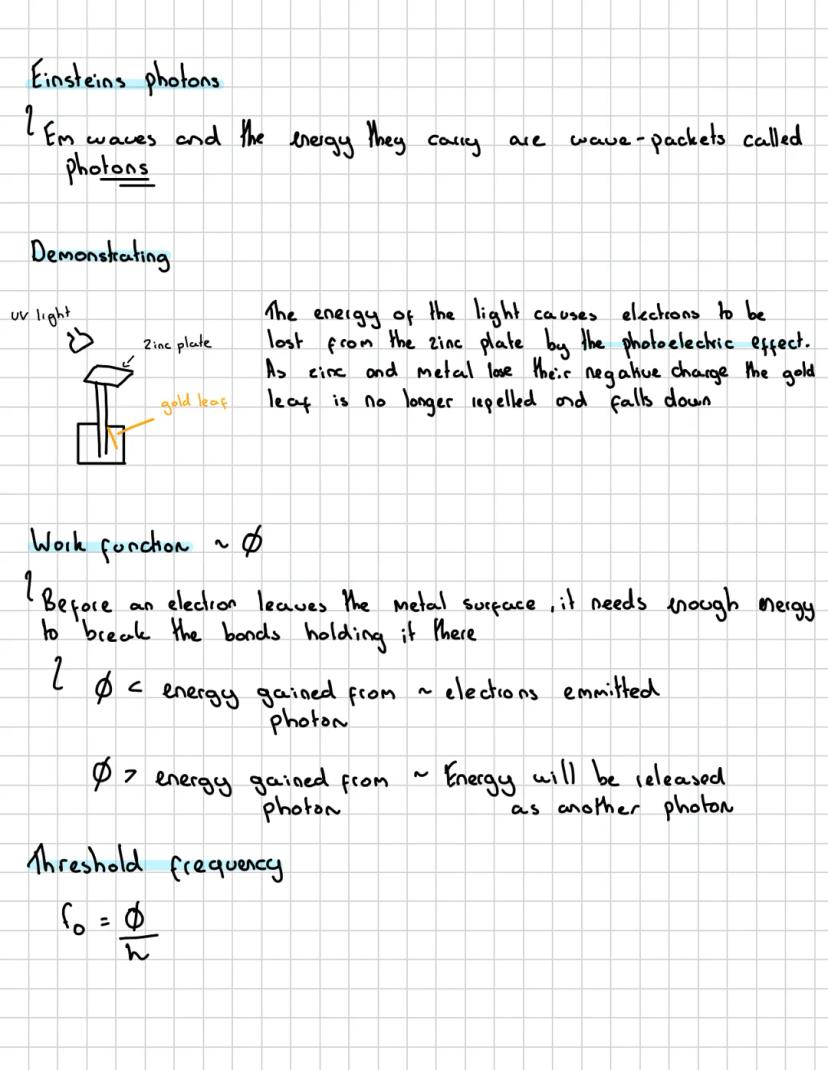 Einsteins photons
Em waves and the energy they carry are wave-packets called
photons
Demonstrating
UV light
zinc plate
gold leaf
The energy of the light causes electrons to be
lost from the zinc plate by the photoelectric effect.
As zinc and metal lose their negative charge the gold
leaf is no longer repelled and falls down
Work function ~ ϕ
Before an electron leaves the metal surface, it needs enough energy
to break the bonds holding it there
ϕ < energy gained from ~ electrons emmitted
photon
ϕ > energy gained from ~ Energy will be released
photon as another photon
Threshold frequency
f₀ = ϕ
h